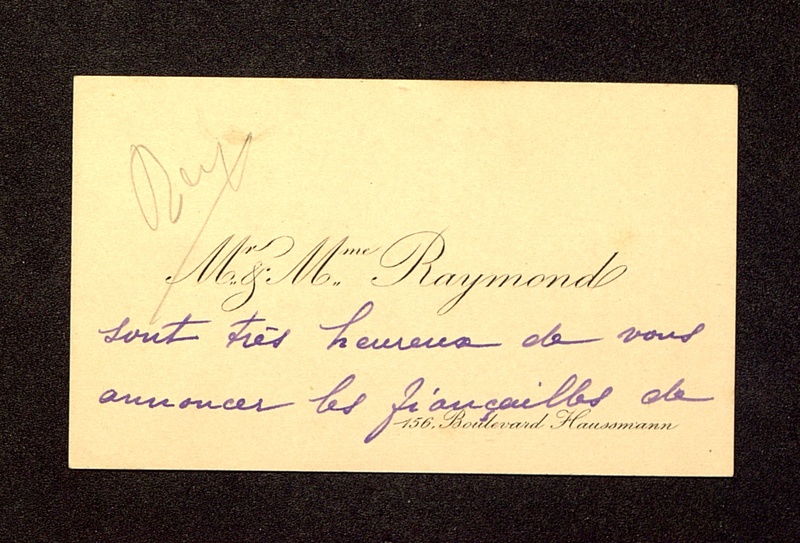 Mr. & Mme. Raymond
sont très heureux de vous
annoncer les fiançailles de
156, Boulevard Haussmann